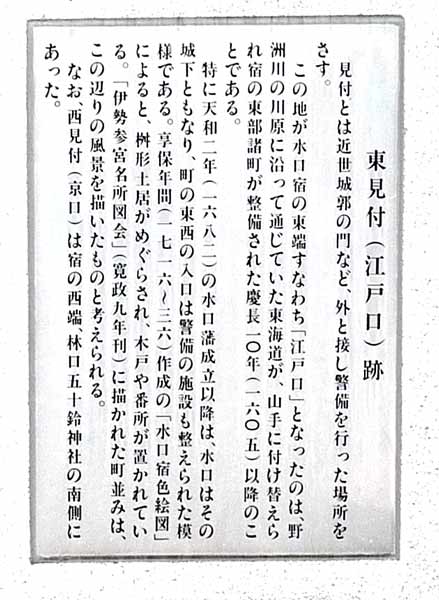 東見付(江戸口)跡
見付とは近世城郭の門など、外と接し警備を行った場所を
さす。
この地が水口宿の東端すなわち「江戸口」となったのは、野
洲川の川原に沿って通じていた東海道が、山手に付け替えら
れ宿の東部諸町が整備された慶長一〇年(一六〇五)以降のこ
とである。
特に天和二年(一六八二)の水口藩成立以降は、水口はその
城下ともなり、町の東西の入口は警備の施設も整えられた模
様である。享保年間(一七一六〜三六)作成の「水口宿色絵図」
によると、桝形土居がめぐらされ、木戸や番所が置かれてい
る。「伊勢参宮名所図会」(寛政九年刊)に描かれた町並みは、
この辺りの風景を描いたものと考えられる。
なお、西見付(京口)は宿の西端、林口五十鈴神社の南側に
あった。